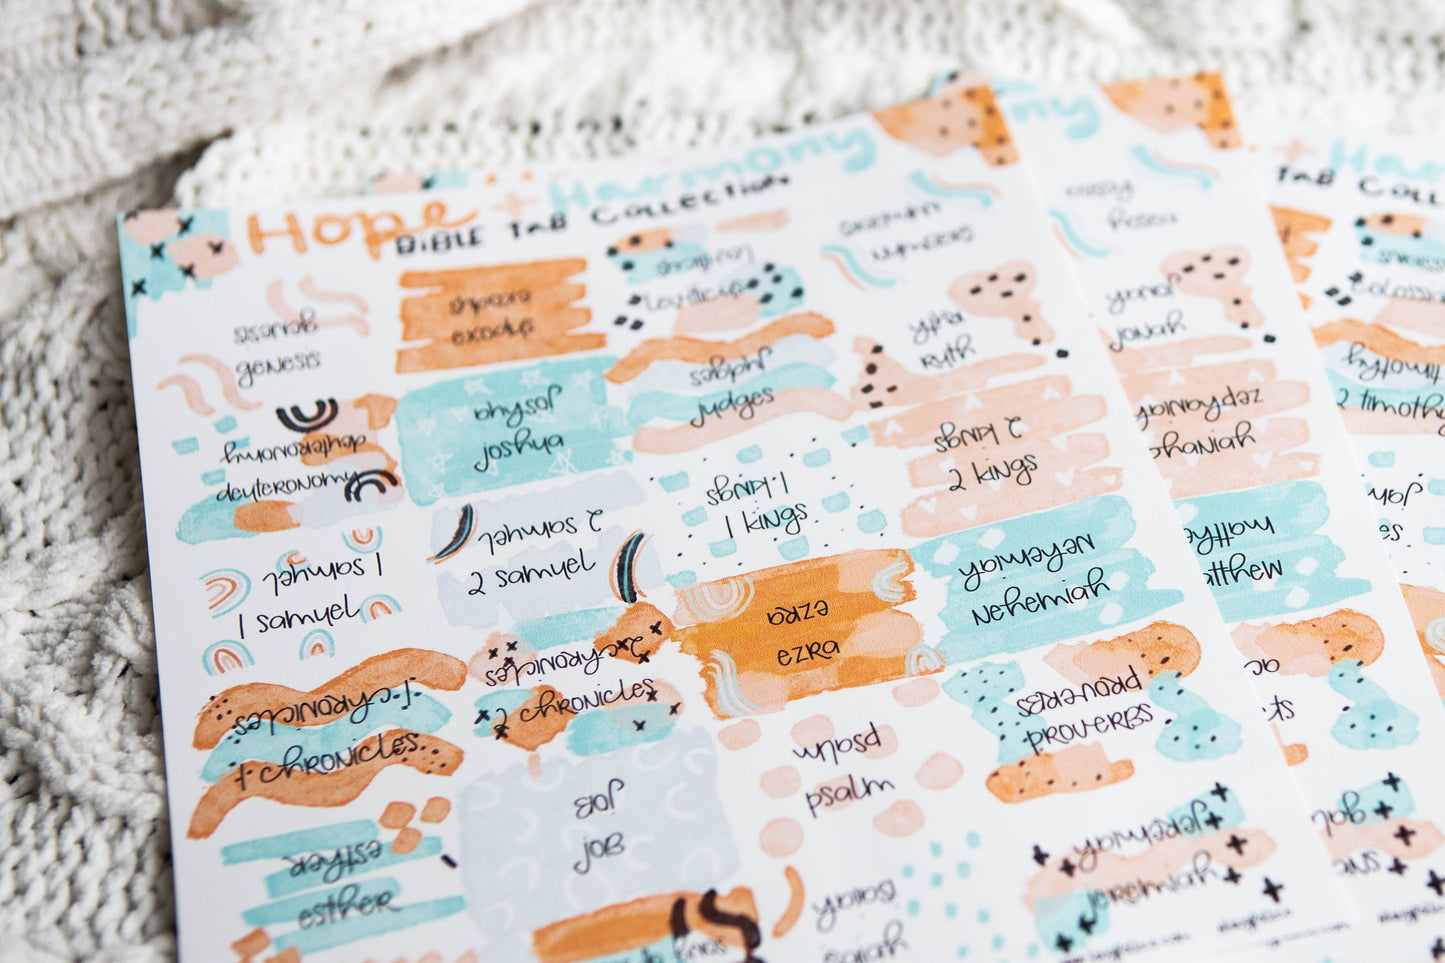 Hope + Harmony
BIBLE TAB COLLECTION
genesis
genesis
exodus
exodus
leviticus
leviticus
numbers
numbers
deuteronomy
deuteronomy
joshua
joshua
judges
judges
ruth
ruth
1 samuel
1 samuel
2 samuel
2 samuel
1 kings
1 kings
2 kings
2 kings
1 chronicles
1 chronicles
2 chronicles
2 chronicles
ezra
ezra
nehemiah
nehemiah
esther
esther
job
job
psalm
psalm
proverbs
proverbs
song of
isaiah
isaiah
jeremiah
jeremiah
ny
hosea
hosea
jonah
jonah
zephaniah
phaniah
matthew
atthew
ts
+ Harmony
TAB COLL
colossi
timothy
2 timothy